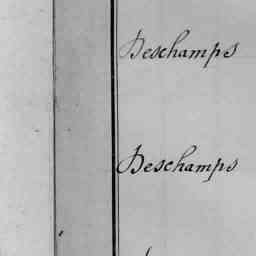 Deschamps
Deschamps